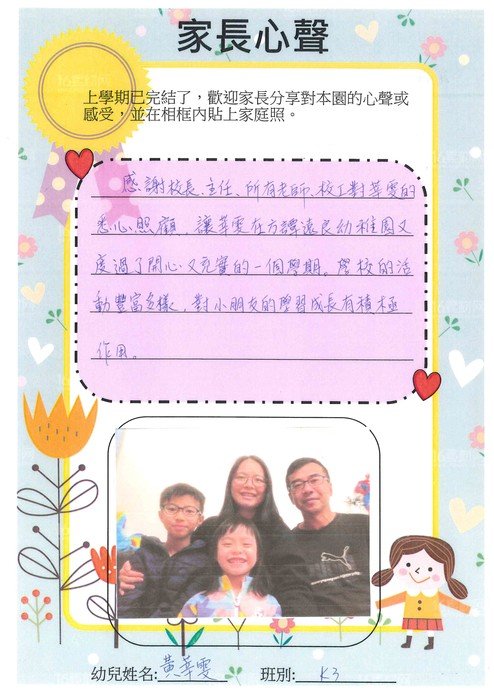 家長心聲
上學期已完結了，歡迎家長分享對本園的心聲或
感受，並在相框內貼上家庭照。
感謝校長、主任、所有老師、校工對莘雯的
悉心照顧，讓莘雯在方譚遠良幼稚園又
度過了開心又充實的一個學期。學校的活
動豐富多樣，對小朋友的學習成長有積極
作用。
幼兒姓名: 黃莘雯 班別: K3